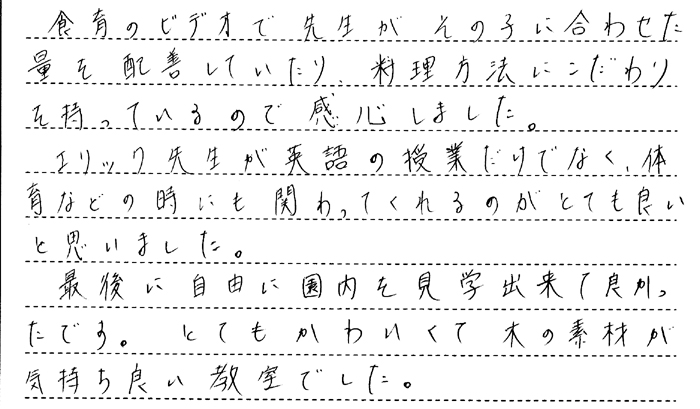 食育のビデオで先生がその子に合わせた
量を配善していたり、料理方法にこだわり
を持っているので感心しました。
エリック先生が英語の授業だけでなく、体
育などの時にも関わってくれるのがとても良い
と思いました。
最後に自由に園内を見学出来て良かっ
たです。とてもかわいくて木の素材が
気持ち良い教室でした。